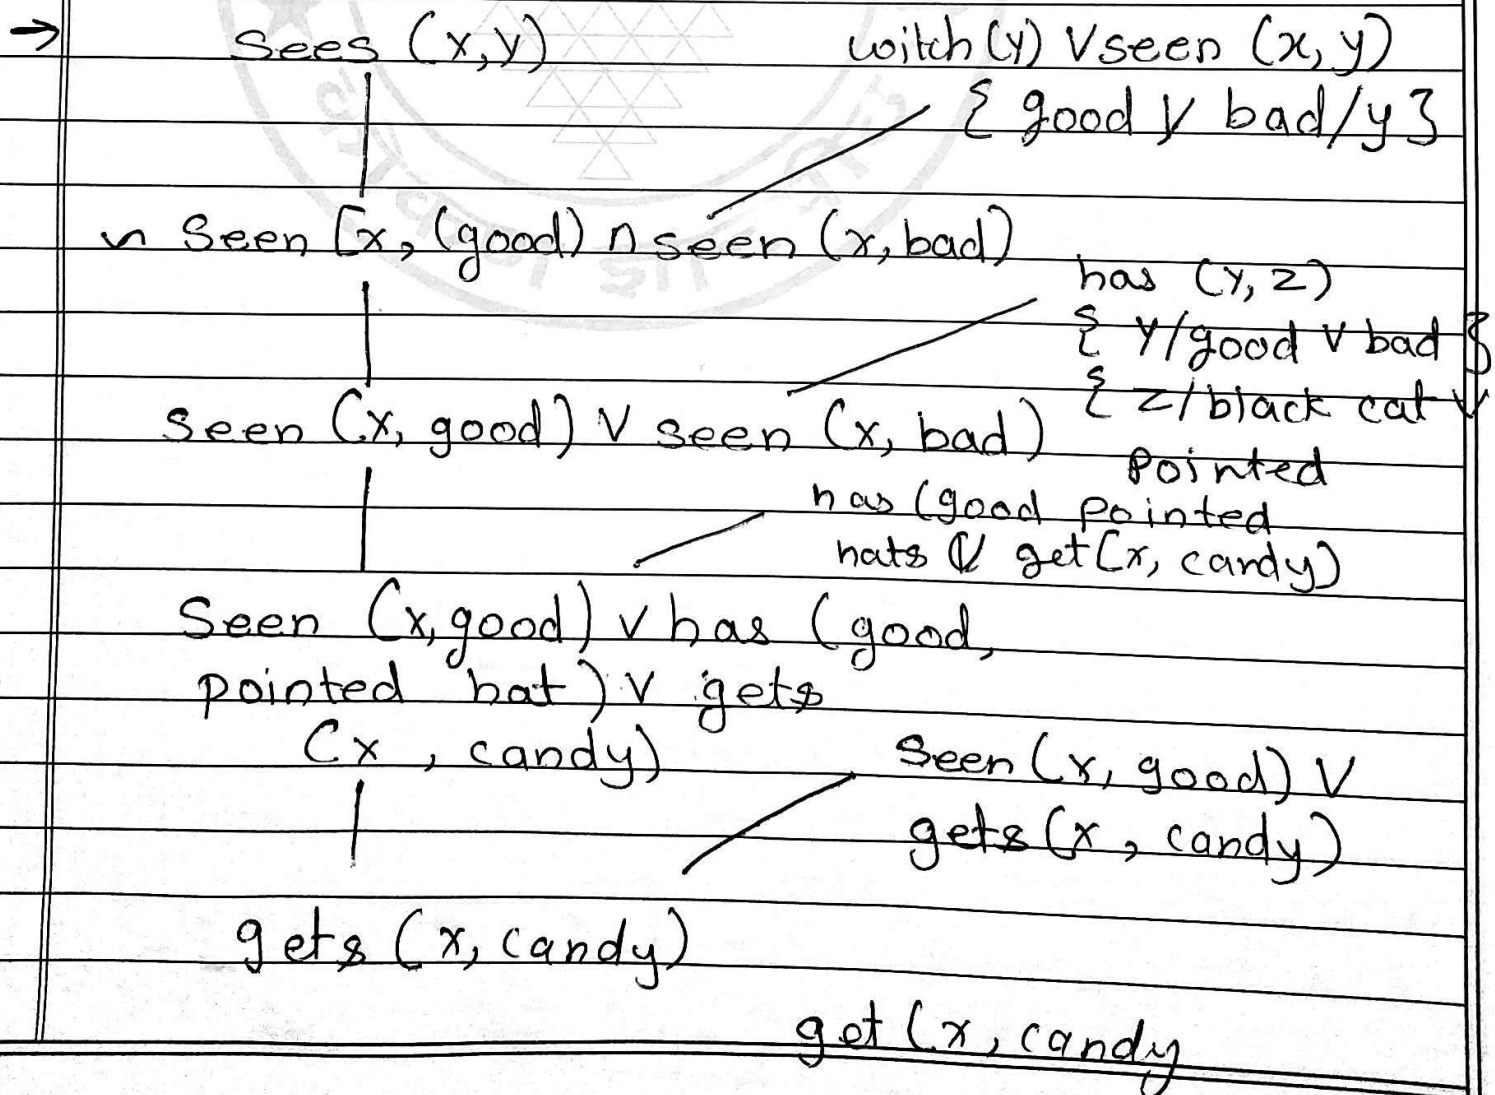 → Sees (x,y) witch(y) V seen (x, y)
{ good V bad/y }
~ Seen [x, (good) ∩ seen (x, bad)
has (Y, Z)
{ Y/good V bad }
{ Z/black cat V
Seen (x, good) V seen (x, bad)
Pointed
has (good pointed
hats V get (x, candy)
Seen (x, good) V has (good,
pointed hat) V gets
(x , candy)
Seen (x, good) V
gets (x , candy)
gets (x, candy)
get (x, candy